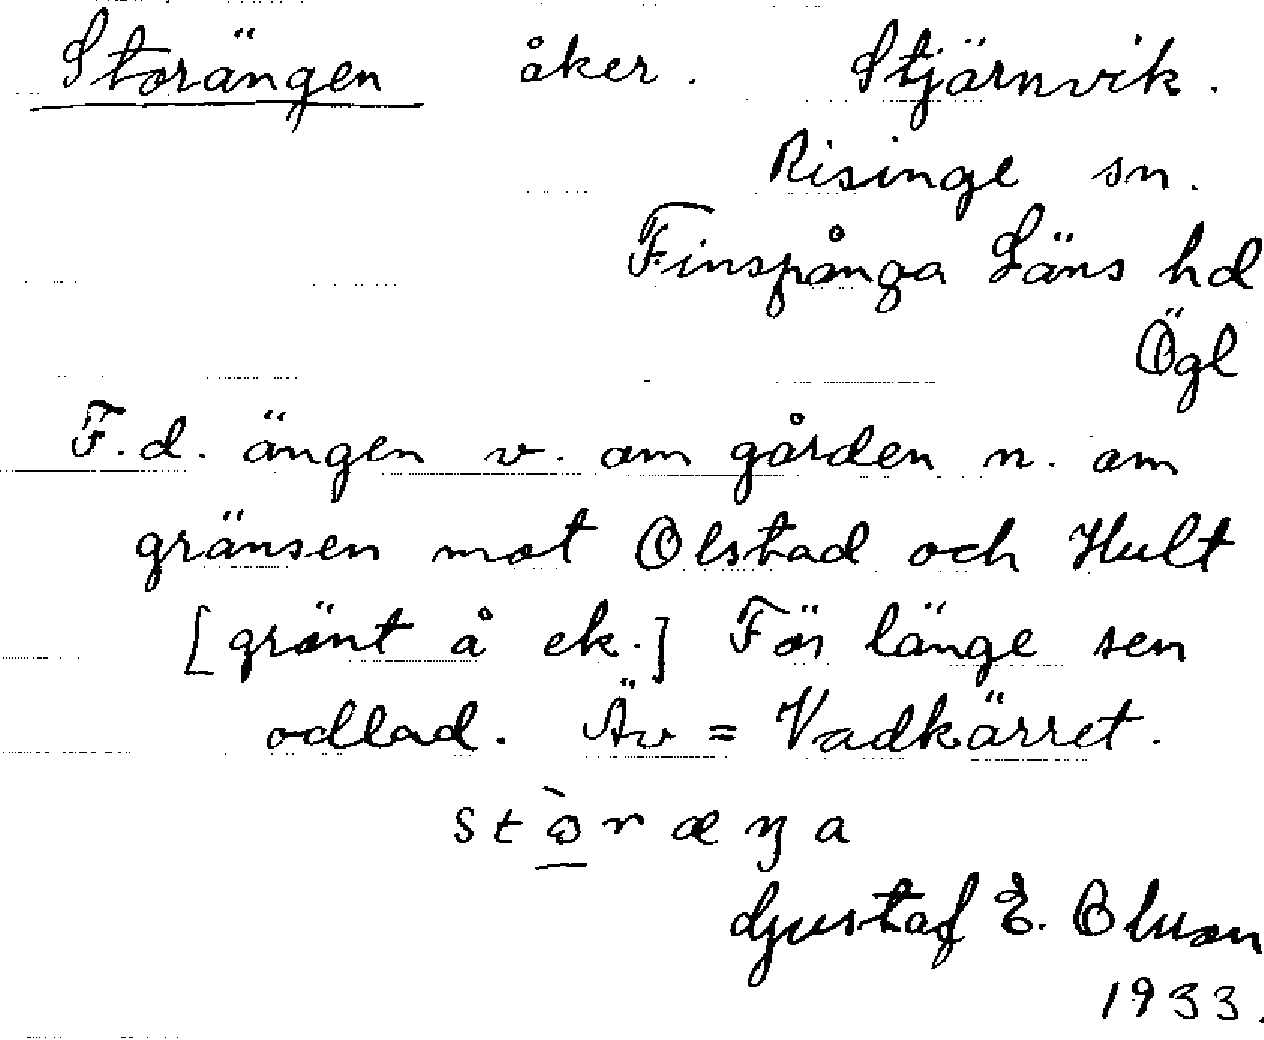 Storängen åker. Stjärnvik.
Risinge sn.
Finspånga Läns hd
Ögl
F.d. ängen v. om gården n. om
gränsen mot Olstad och Hult
[grönt å ek.] För länge sen
odlad. Äv = Vadkärret.
Gustaf E. Olsson
1933.